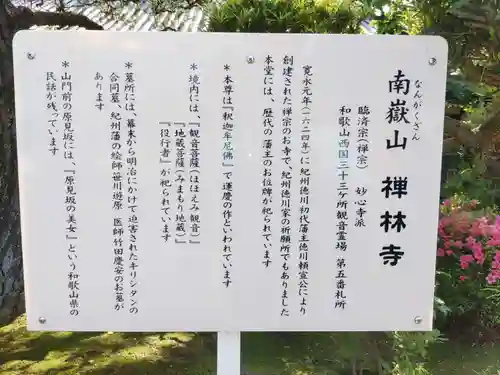 なんがくさん
南嶽山 禅林寺
臨済宗(禅宗) 妙心寺派
和歌山西国三十三ケ所観音霊場 第五番札所
寛永元年(一六二四年)に紀州徳川初代藩主徳川頼宣公により
創建された禅宗のお寺で、紀州徳川家の祈願所でもありました
本堂には、歴代の藩主のお位牌が祀られています
*本尊は『釈迦牟尼佛』で運慶の作といわれています
*境内には、『観音菩薩(ほほえみ観音)』
『地蔵菩薩(みまもり地蔵)』
『役行者』が祀られています
*墓所には、幕末から明治にかけて迫害されたキリシタンの
合同墓、紀州藩の絵師笹川遊原 医師竹田慶安のお墓が
あります
*山門前の原見坂には、『原見坂の美女』という和歌山県の
民話が残っています